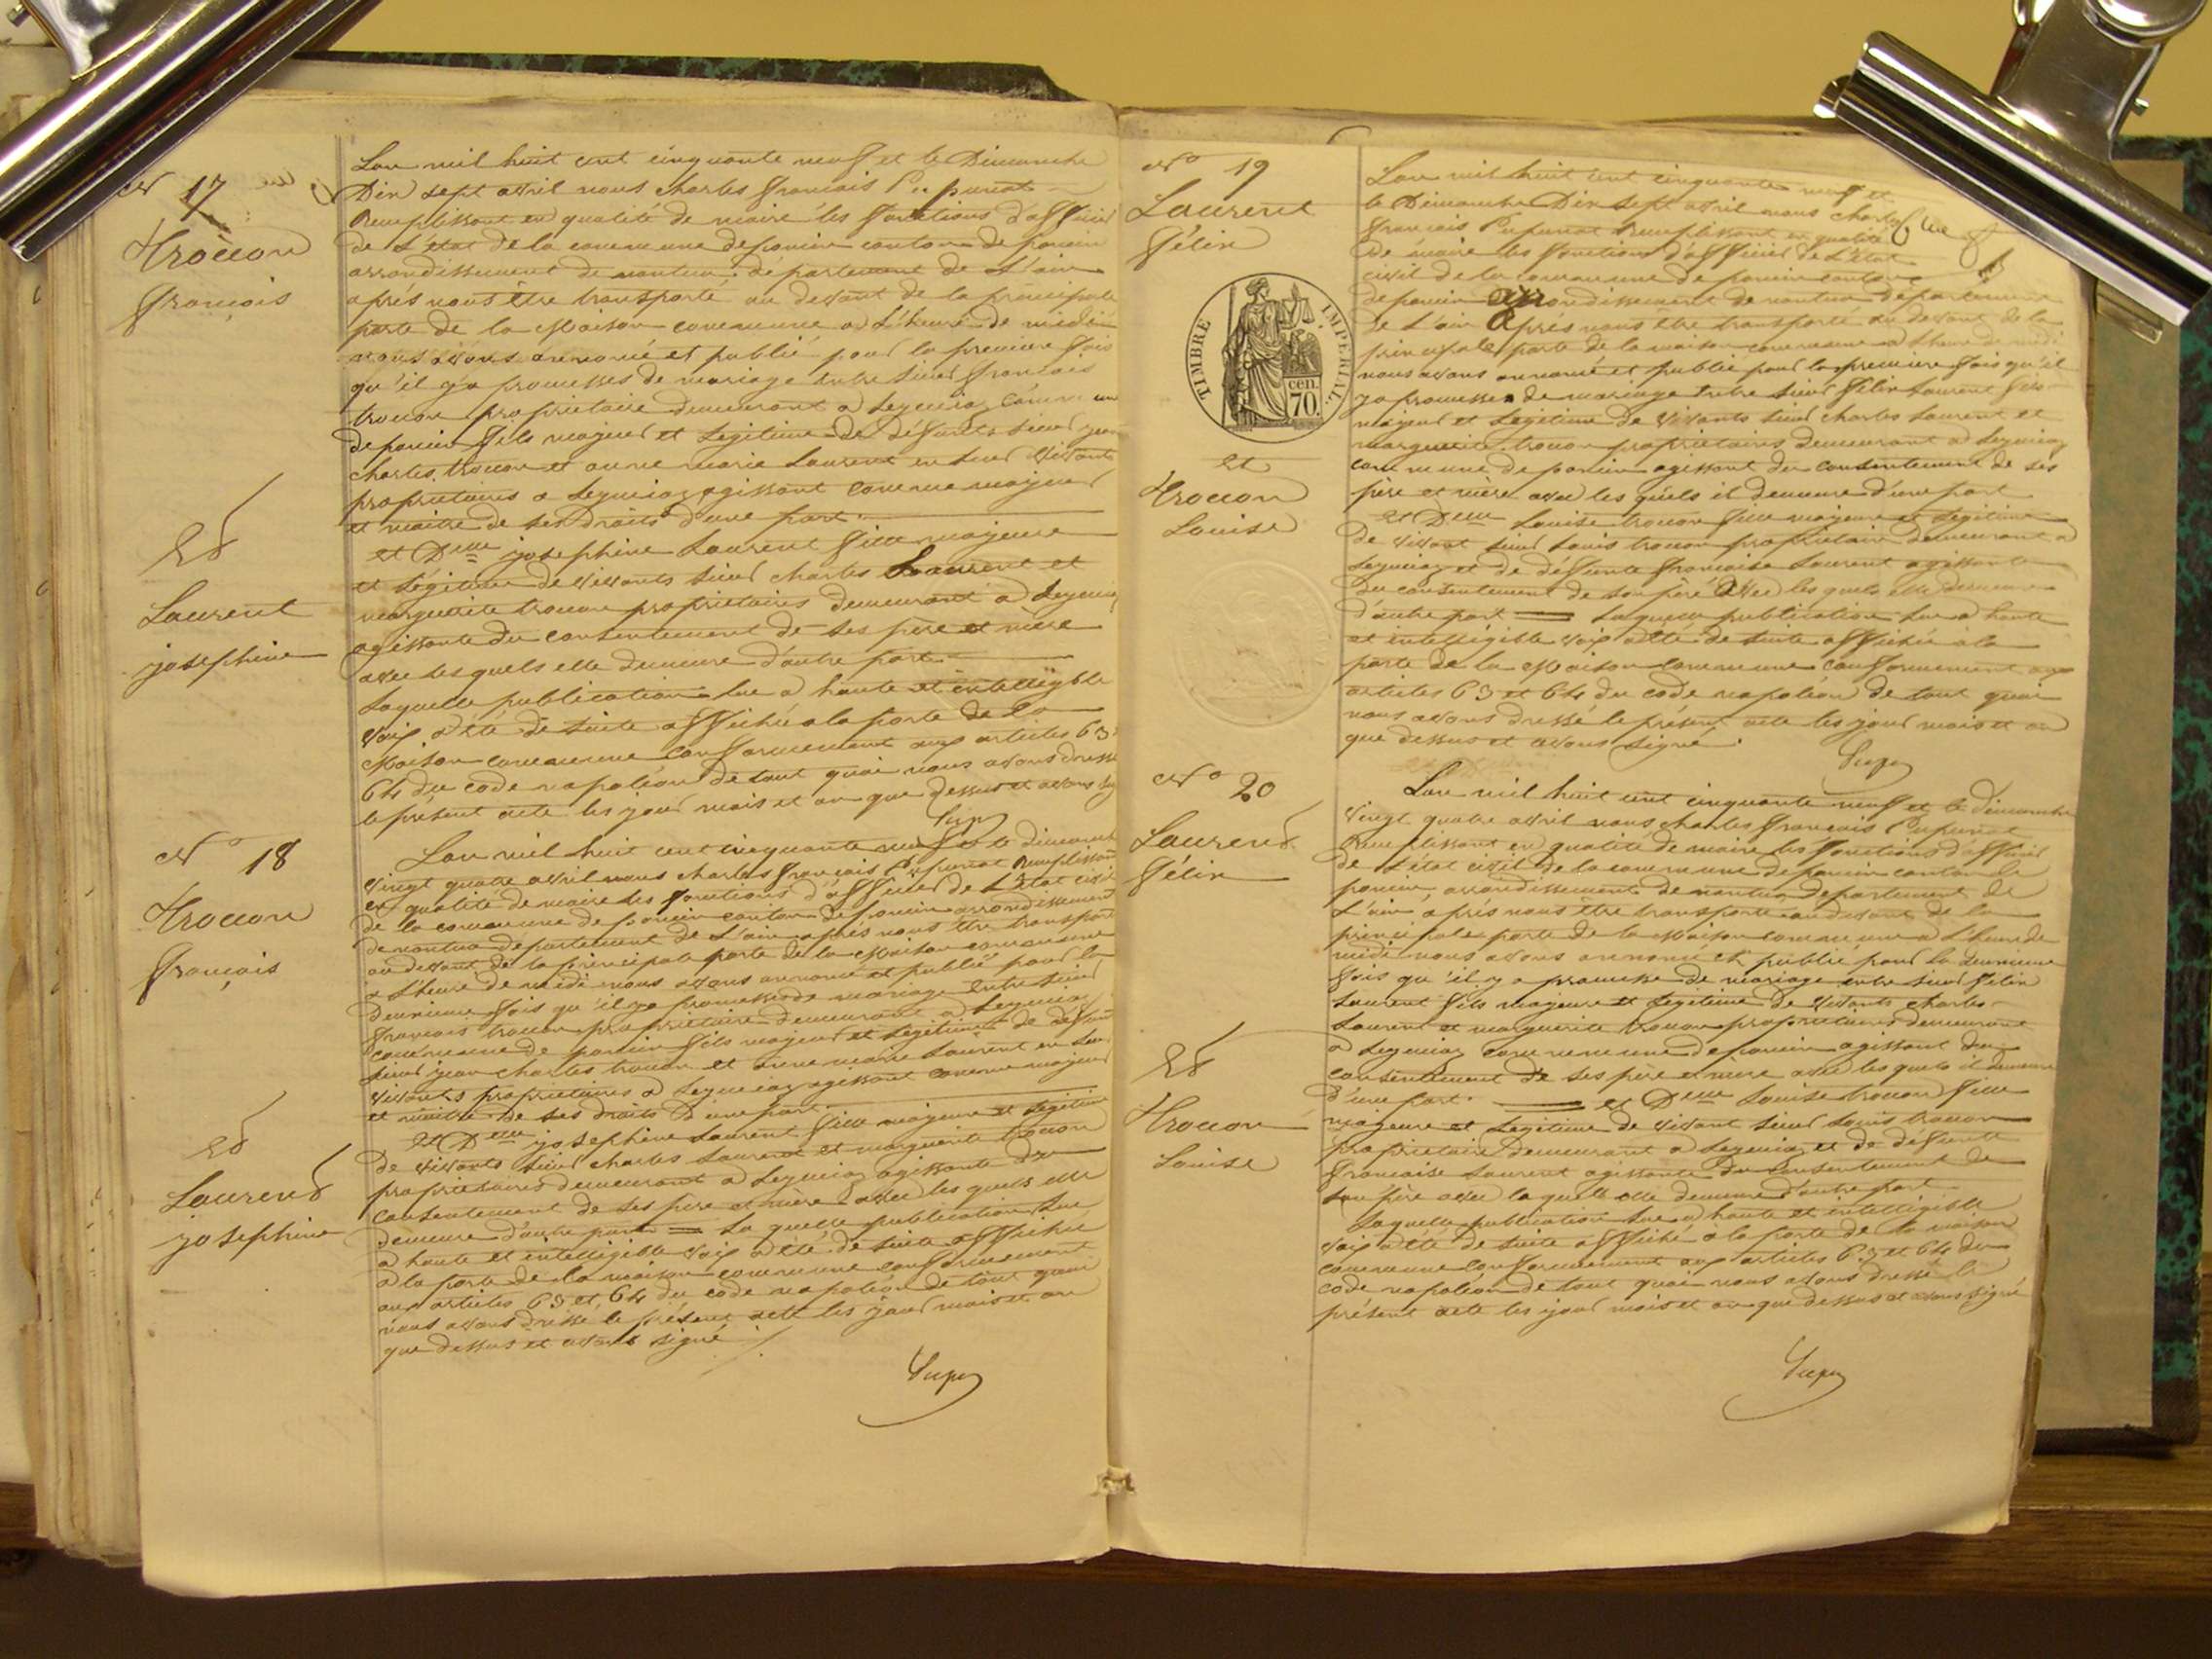 N° 17
Trocon
françois
Et
Laurent
josephine
Lan mil huit cent cinquante neuf et le Dimanche
Dix sept avril nous charles françois Pupunat
Remplissant en qualité de maire les fonctions d'officier
de L'état de la commune de poncin canton de poncin
arrondissement de nantua département de L'ain
aprés nous être transporté au devant de la principale
porte de la Maison commune a L'heure de midi
nous avons annoncé et publié pour la premiere fois
qu'il y a promesses de mariage entre sieur françois
trocon propriétaire demeurant a Leymiaz commune
de poncin fils majeur et Legitime de défunts sieur jean
charles trocon et anne marie Laurent en leur vivants
propriétaires a Leymiaz agissant comme majeur
et maitre de ses droits d'une part.
et Delle josephine Laurent fille majeure
et légitime de vivants sieur charles Laurent et
marguerite trocon propriétaires demeurant a Leymiaz
agissante du consentement de ses père et mère
avec les quels elle demeure d'autre part
Laquelle publication lue a haute et intelligible
voix a été de suite affichée a la porte de la
Maison commune conformement aux articles 63 
64 du code napoléon de tout quoi nous avons dressé
le présent acte les jour mois et an que dessus et avons
Pupu
N° 18
Trocon
françois
Et
Laurent
josephine
Lan mil huit cent cinquante neuf et le dimanche
vingt quatre avril nous charles françois Pupunat Remplissant
en qualité de maire les fonctions d'officier de L'état civil
de la commune de poncin canton de poncin arrondissement
de nantua département de L'ain aprés nous être transporté
au devant de la principale porte de la Maison commune
a L'heure de midi nous avons annoncé et publié pour la
deuxieme fois qu'il y a promesses de mariage entre sieur
françois trocon propriétaire demeurant a Leymiaz
commune de poncin fils majeur et Legitime de défunts
sieur jean charles trocon et anne marie Laurent en leur
vivants propriétaires a Leymiaz agissant comme majeur
et maitre de ses droits d'une part.
et Delle josephine Laurent fille majeure et légitime
de vivants sieur charles Laurent et marguerite trocon
propriétaires demeurant a Leymiaz agissante du
consentement de ses père et mère avec les quels elle
demeure d'autre part = La quelle publication lue
a haute et intelligible voix a été de suite affichée
a la porte de la maison commune conformement
aux articles 63 et 64 du code napoléon de tout quoi
nous avons dressé le présent acte les jour mois et an
que dessus et avons signé ./.
Pupu
N° 19
Laurent
félix
TIMBRE IMPERIAL.
cen.
70.
et
Trocon
Louise
Lan mil huit cent cinquante neuf et
le Dimanche Dix sept avril nous charles
françois Pupunat Remplissant en qualité
de maire les fonctions d'officier de L'état
civil de la commune de poncin canton
de poncin arrondissement de nantua département
de L'ain aprés nous être transporté au devant de la
principale porte de la maison commune a L'heure de midi
nous avons annoncé et publié pour la premiere fois qu'il
y a promesses de mariage entre sieur félix Laurent fils
majeur et Legitime de vivants sieur charles Laurent et
marguerite trocon propriétaires demeurant a Leymiaz
commune de poncin agissant du consentement de ses
père et mère avec les quels il demeure d'une part
et Delle Louise trocon fille majeure et légitime
de vivant sieur Louis trocon propriétaire demeurant a
Leymiaz et de défunte françoise Laurent agissante
du consentement de son père avec les quels elle demeure
d'autre part = Laquelle publication lue a haute
et intelligible voix a été de suite affichée a la
porte de la Maison commune conformement aux
articles 63 et 64 du code napoléon de tout quoi
nous avons dressé le présent acte les jour mois et an
que dessus et avons signé.
Pupu
N° 20
Laurent
félix
Et
Trocon
Louise
Lan mil huit cent cinquante neuf et le dimanche
vingt quatre avril nous charles françois Pupunat
Remplissant en qualité de maire les fonctions d'officier
de L'état civil de la commune de poncin canton de
poncin, arrondissement de nantua département de
L'ain, aprés nous être transporté au devant de la
principale porte de la Maison commune a L'heure de
midi nous avons annoncé et publié pour la deuxieme
fois qu'il y a promesse de mariage entre sieur félix
Laurent fils majeure et Legitime de vivants charles
Laurent et marguerite trocon propriétaires demeurant
a Leymiaz commune de poncin agissant du
consentement de ses père et mère avec les quels il demeure
d'une part. = et Delle Louise trocon fille
majeure et Legitime de vivant sieur Louis trocon
propriétaire demeurant a Leymiaz et de défunte
françoise Laurent agissante du consentement de
son père avec laquelle elle demeure d'autre part
Laquelle publication lue a haute et intelligible
voix a été de suite affiché a la porte de la maison
commune conformement aux articles 63 et 64 du
code napoléon de tout quoi nous avons dressé le
présent acte les jour mois et an que dessus et avons signé
Pupu